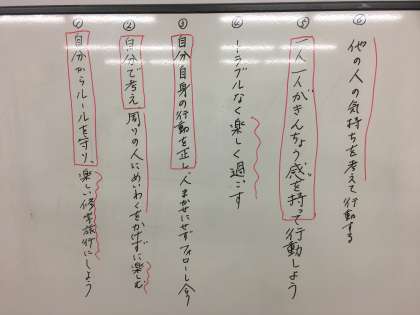 ① 自分からルールを守り、楽しい修学旅行にしよう
② 自分で考え周りの人にめいわくをかけずに楽しむ
③ 自分自身の行動を正し、人まかせにせずフォローし合う
④ トラブルなく楽しく過ごす
⑤ 一人一人がきんちょう感を持って行動しよう
⑥ 他の人の気持ちを考えて行動する